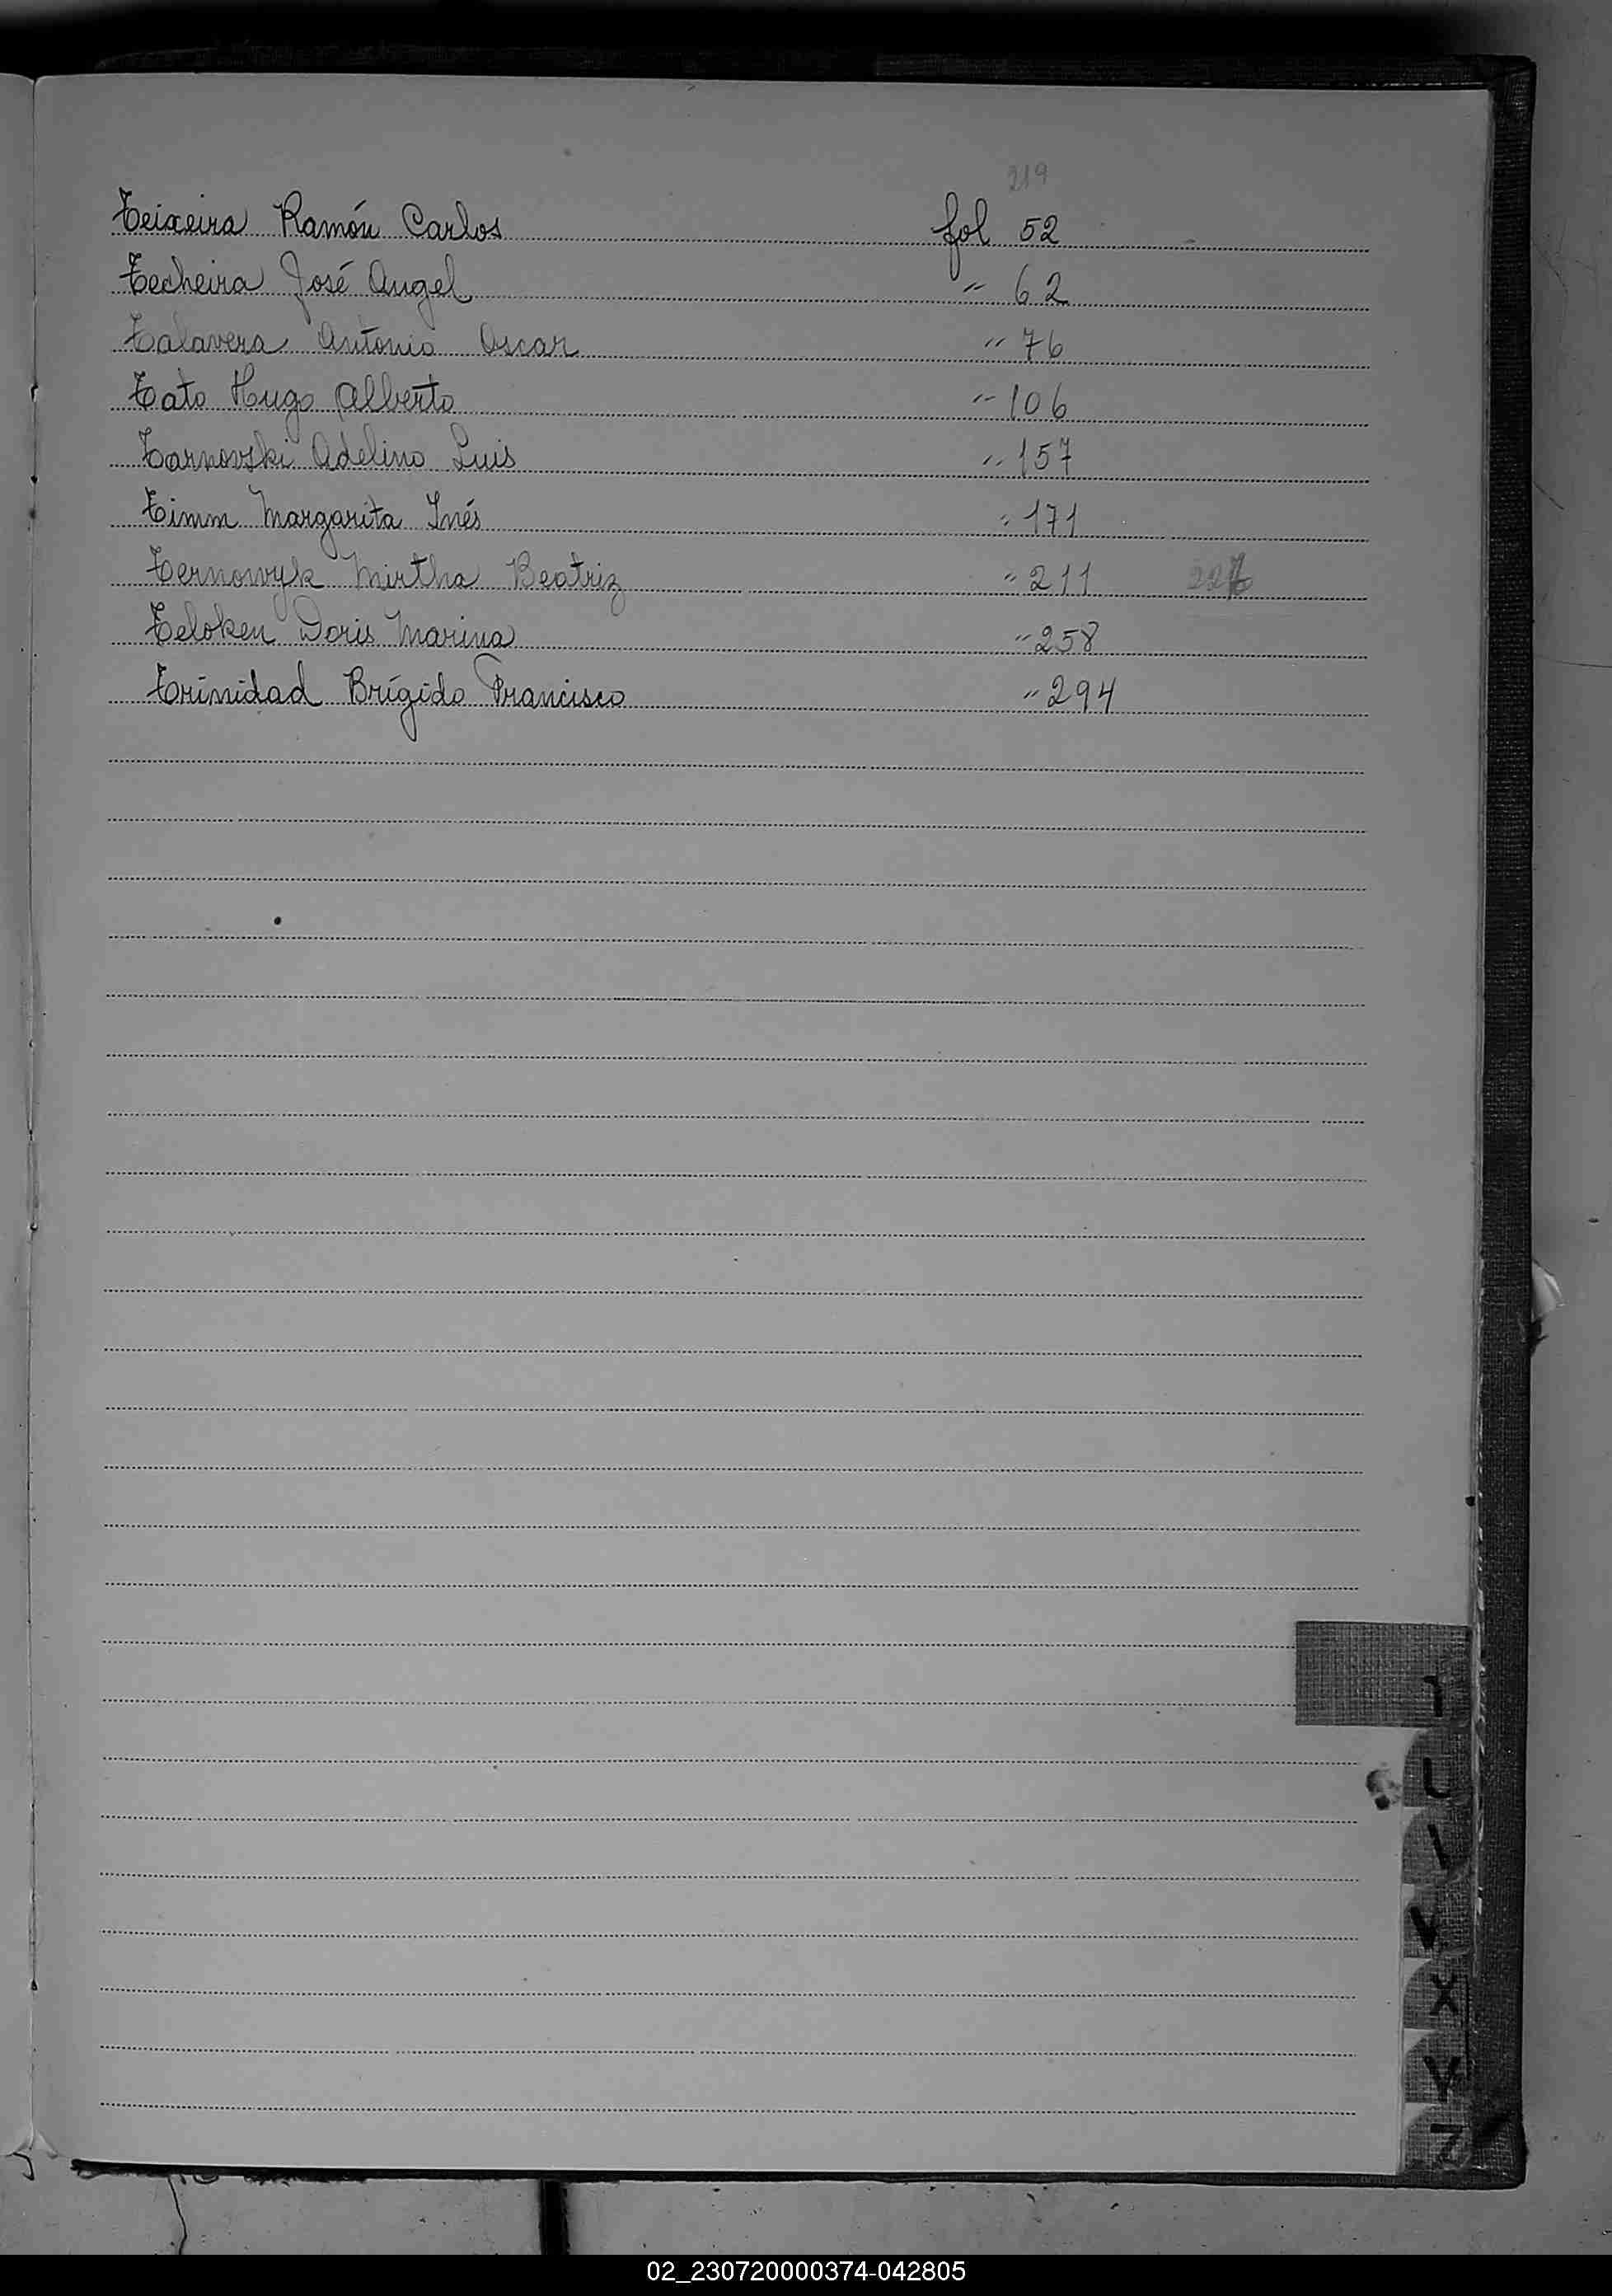 219
Teixeira Ramón Carlos fol 52
Techeira José Angel " 62
Talavera Antonio Oscar " 76
Tato Hugo Alberto " 106
Tarnovski Adelino Luis " 157
Timm Margarita Inés " 171
Ternowyk Mirtha Beatriz " 211
Teloken Doris Marina " 258
Trinidad Brígido Francisco " 294
T
V
X
Y
Z
02_230720000374-042805